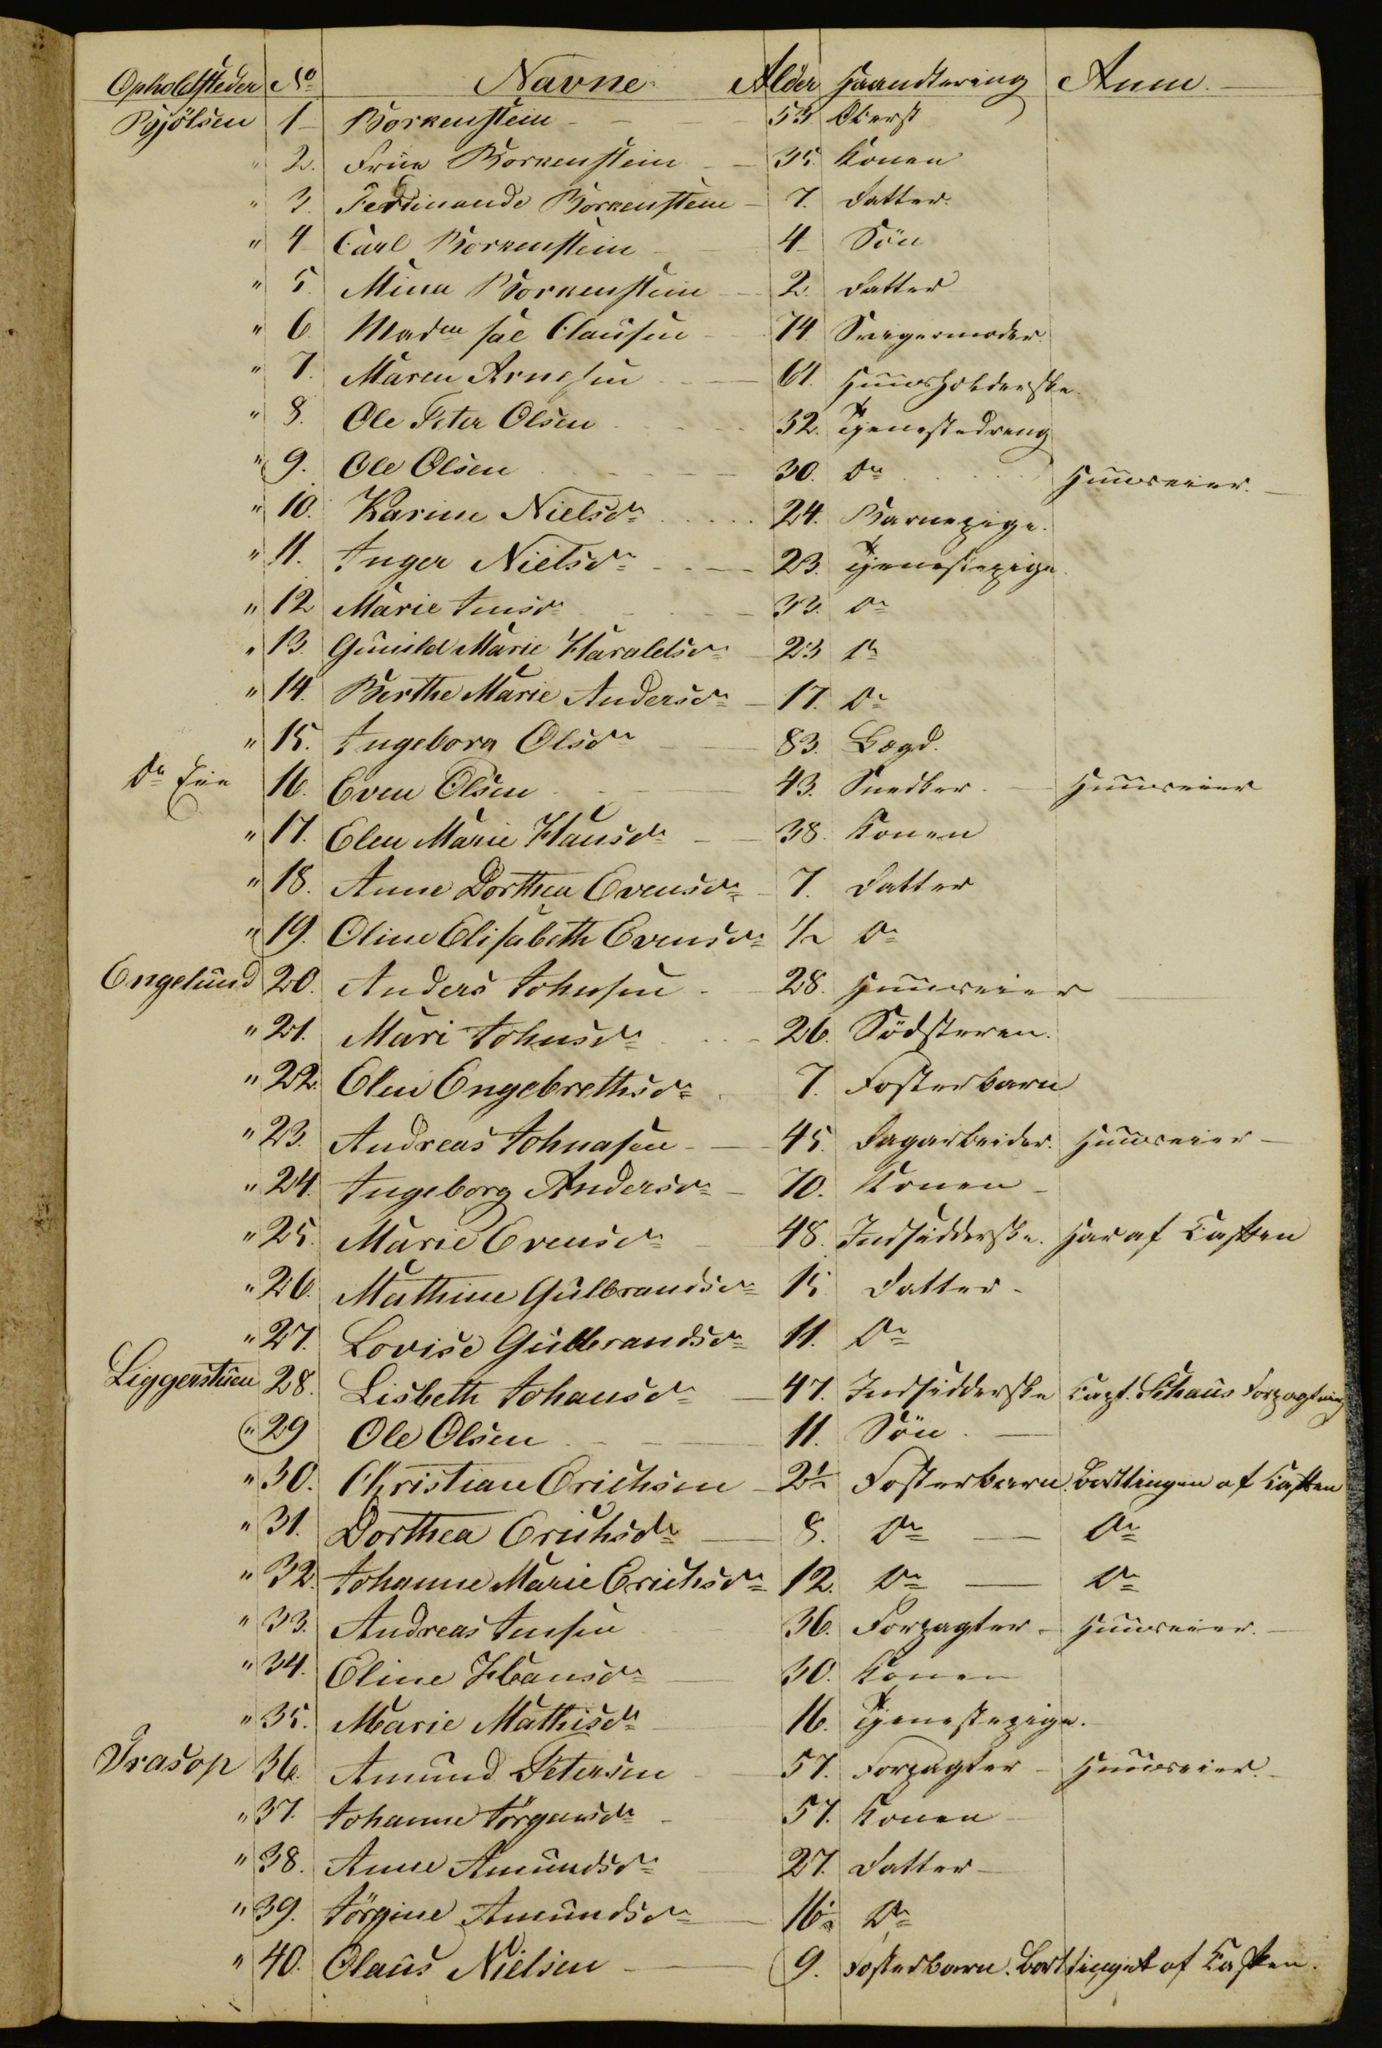 Opholdsteder No Navne Alder Haandtering Anm.
Bjölsen 1 Borkenstein 53 Oberst
" 2. Frue Borkenstein 35. Konen
" 3. Ferdinande Borkenstein 7. Datter.
" 4 Carl Borkenstein 4 Sön
" 5. Mina Borkenstein 2. Datter
" 6. Madm sal Clausen 74. Svigermoder
" 7. Maren Arnesen 64. Huusholderske.
" 8. Ole Peter Olsen 32. Tjenestedreng
" 9. Ole Olsen 30. Do Huuseier.
" 10. Karine Nielsdr 24. Barnepige.
" 11. Inger Nielsdr 23. Tjenestepige.
" 12 Marie Jensdr 33. Do
" 13. Gunild Marie Haraldsdr 23 Do
" 14. Berthe Marie Andersdr 17. Do
" 15. Ingeborg Olsdr 83. Lægd.
Do Eie 16. Even Olsen 43. Snedker. Huuseier
" 17. Elen Marie Hansdr 38. Konen
" 18. Anne Dorthea Evensdr 7. Datter
" 19. Oline Elisabeth Evensdr 1/2 Do
Engelund 20. Anders Johnsen 28. Huuseier
" 21. Mari Johnsdr 26. Södsteren.
" 22. Elen Engebrethsdr 7. Fosterbarn
" 23. Andreas Johnasen 45. Dagarbeider. Huuseier
" 24. Ingeborg Andersdr 70. Konen
" 25. Marie Evensdr 48. Indsidderske. Har af Casten
" 26. Mathine Gulbrandsdr 15. Datter
" 27. Lovise Gulbrandsdr 11. Do
Liggerstuen 28. Lisbeth Johansdr 47. Indsidderske Capt. Schaus Forpagtning
" 29 Ole Olsen 11. Sön
" 30. Christian Erichsen 2 1/2 Fosterbarn. Borttingen af Casten
" 31. Dorthea Erichsdr 8. Do Do
" 32. Johanne Marie Erichsdr 12. Do Do
" 33. Andreas Jensen 36. Forpagter Huuseier.
" 34. Eline Hansdr 30. Konen
" 35. Marie Mathisdr 16. Tjenestepige.
Trasop 36. Amund Petersen 57. Forpagter Huuseier.
" 37. Johanne Jörgensdr 57. Konen
" 38. Anne Amundsdr 27. Datter
" 39. Jörgine Amundsdr 16 1/2 Do
" 40. Olaus Nielsen 9. Fosterbarn. Borttinget af Casten.